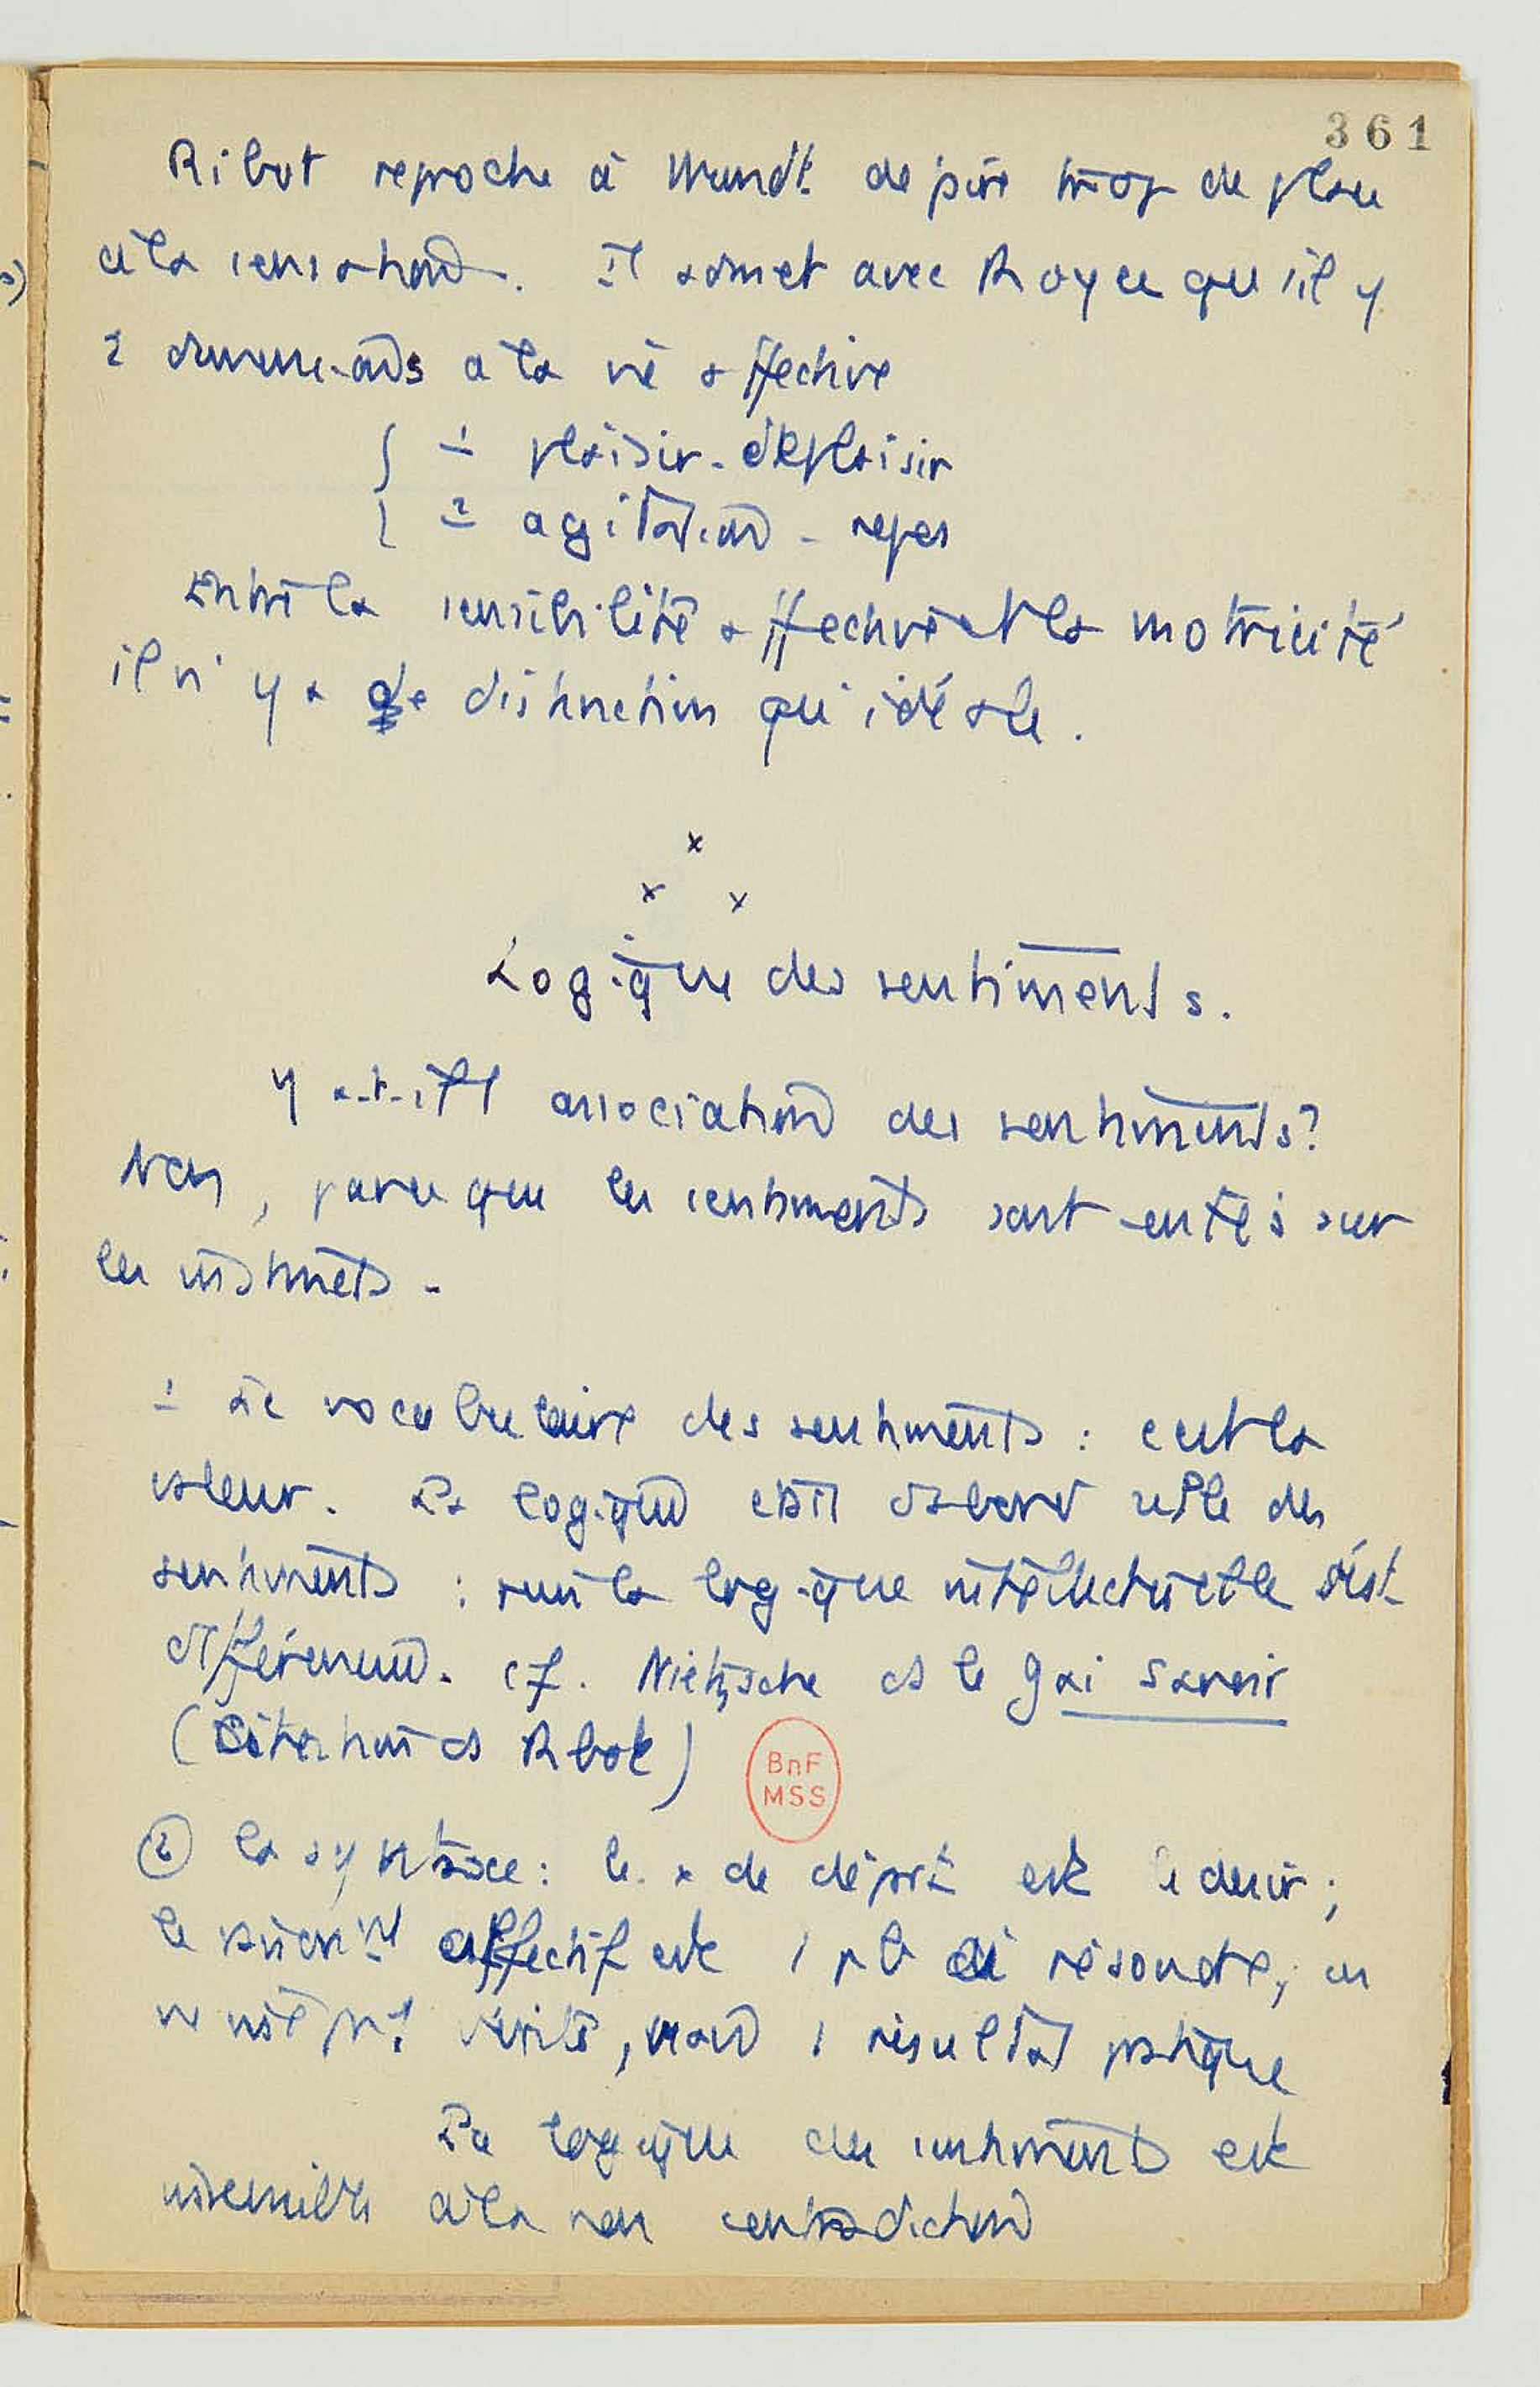 361
Ribot reproche à Wundt de faire trop de place
à la sensation. Il admet avec Royce qu'il y
2 dimensions à la vie affective
1 plaisir - déplaisir
2 agitation - repos
Entre la sensibilité affective et la motricité
il n'y a de distinction qu'idéale.
x
x x
Logique des sentiments.
Y a-t-il association des sentiments?
Non, parce que les sentiments sont entés sur
les instincts.
1 Le vocabulaire des sentiments : c'est la
valeur. La logique était d'abord celle des
sentiments : puis la logique intellectuelle s'est
différenciée. cf. Nietzsche ds le gai savoir
(Citation ds Ribot)
BnF
MSS
2 la syntaxe: le x de départ est le désir ;
le affectif est 1 pb à résoudre, on
ne vise pas 1 vérité, mais 1 résultat pratique
La logique des sentiments est
insensible à la non contradiction